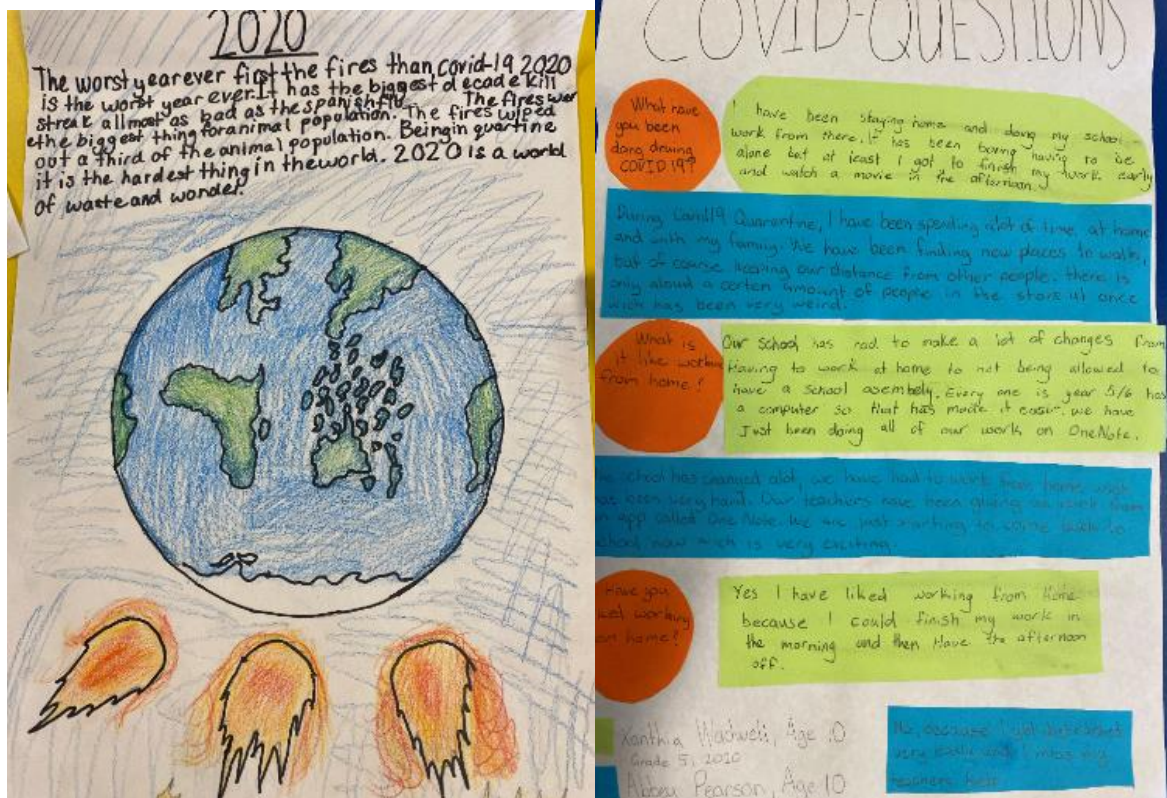 2020
The worst year ever first the fires than covid-19 2020
is the worst year ever. It has the biggest decade kill
streak allmost as bad as the spanish flu. The fires wer
ethe biggest thing for animal population. The fires wiped
out a third of the animal population. Being in quartine
it is the hardest thing in the world. 2020 is a world
of waste and wonder.
COVID-QUESTIONS
What have
you been
doing druing
COVID 19?
I have been staying home and doing my school
work from there. It has been boring having to be
alone but at least I got to finish my work early
and watch a movie in the afternoon.
During Covid19 Quarantine, I have been spending alot of time, at home
and with my family. We have been finding new places to walk,
but of course keeping our distance from other people. there is
only aloud a certen amount of people in the store at once
wich has been very weird.
What is
it like working
from home?
Our school has had to make a lot of changes from
Having to work at home to not being allowed to
have a school asembely. Every one is year 5/6 has
a computer so that has made it easier. we have
Just been doing all of our work on OneNote.
school has changed alot, we have had to work from home wich
has been very hard. Our teachers have been giving us work from
an app called One Note. We are just starting to come back to
school now wich is very exciting.
Have you
working
home?
Yes I have liked working from Home
because I could finish my work in
the morning and then Have the afternoon
off.
No, because I got distracted
very easily and I miss my
teachers help
Xanthia, Age 10
Grade 5, 2020
Abbey Pearson, Age 10